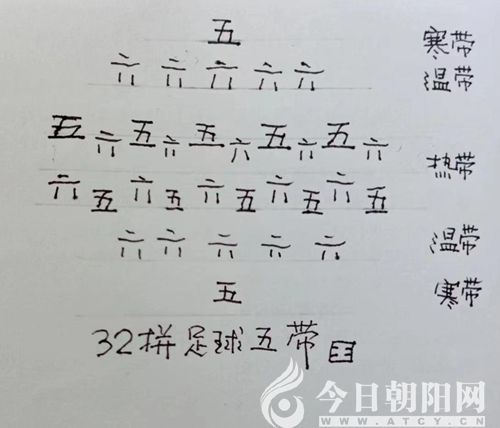 五 寒带
六 六 六 六 六 温带
五 六 五 六 五 六 五 六 五 六
热带
六 五 六 五 六 五 六 五 六 五
六 六 六 六 六 温带
五 寒带
32拼足球五带
今日朝阳网
WWW.ATCY.CN